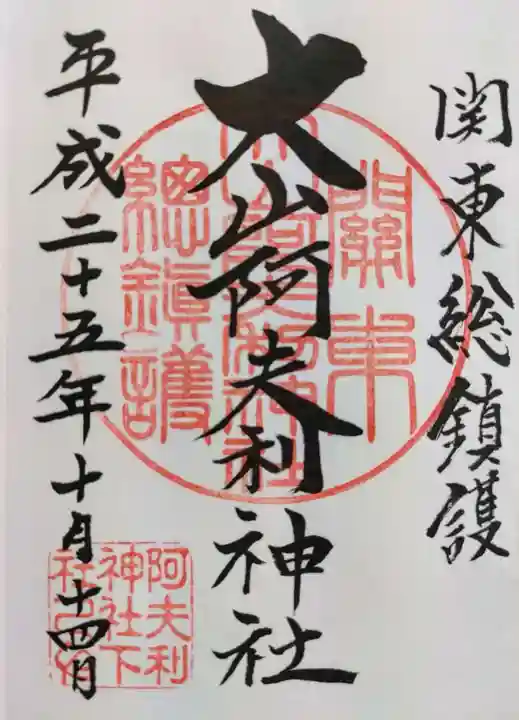 関東総鎮護
大山阿夫利神社
平成二十五年十月十四日
關東
大山阿夫利神社
總鎭護
阿夫利
神社下
社